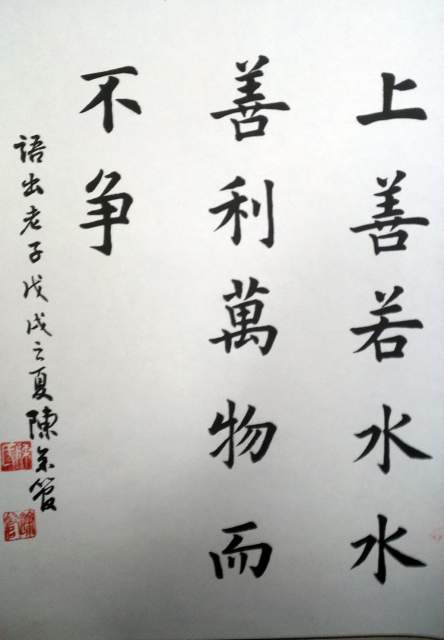 上善若水水
善利萬物而
不争
语出老子戊戌之夏陳